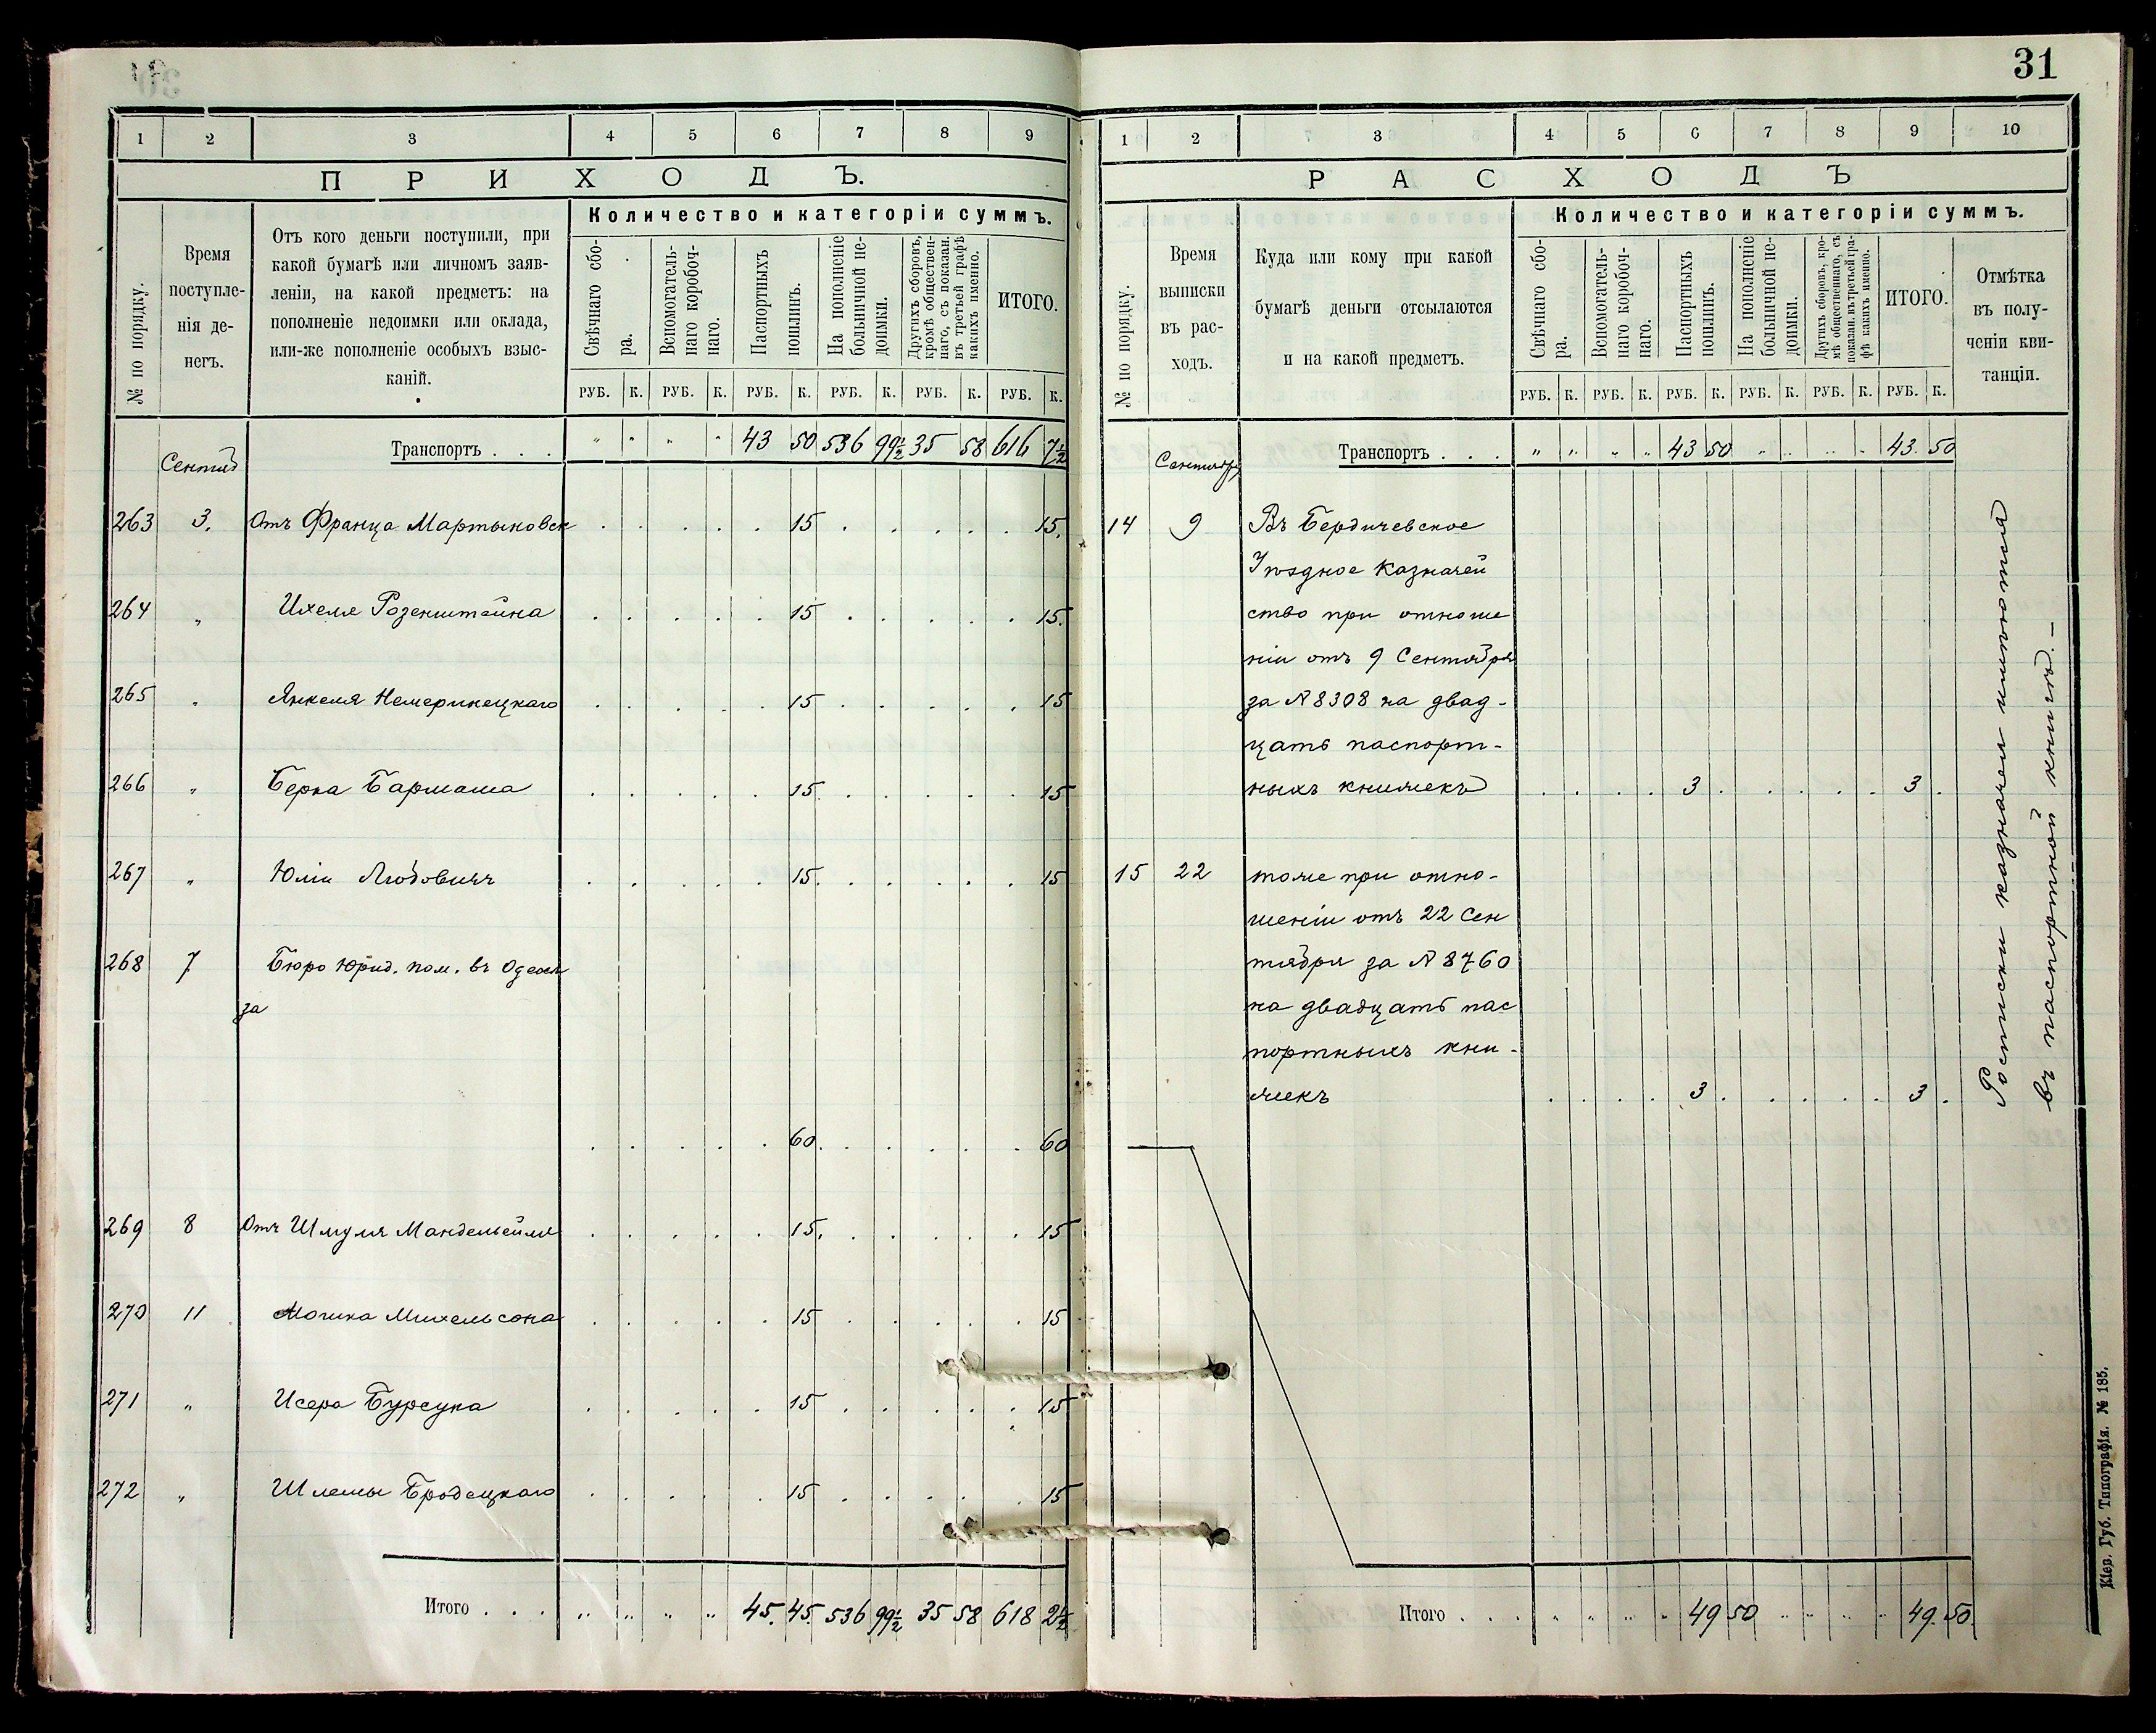 31
1 2 3 4 5 6 7 8 9
ПРИХОДЪ.
№ по порядку.
Время поступле-
нія де-
негъ.
Отъ кого деньги поступили, при
какой бумагѣ или личномъ заяв-
леніи, на какой предметъ: на
пополненіе недоимки или оклада,
или-же пополненіе особыхъ взыс-
каній.
Количество и категоріи суммъ.
Свѣчнаго сбо-
ра.
Вспомогатель-
наго коробоч-
наго.
Паспортныхъ
пошлинъ.
На пополненіе
больничной не-
доимки.
Другихъ сборовъ,
кромѣ обществен-
наго, съ показан.
въ третьей графѣ
какихъ именно.
ИТОГО.
РУБ. К. РУБ. К. РУБ. К. РУБ. К. РУБ. К. РУБ. К.
Транспортъ . . . " " " " 43 50 536 99½ 35 58 616 7½
Сентяб
263 3. Отъ Франца Мартыновск 15 15.
264 " Ихеля Розенштейна 15 15.
265 " Янкеля Немеринецкаго 15 15
266 " Берка Бармаша 15 15
267 " Юліи Людовичъ 15 15
268 7 Бюро Юрид. пом. въ Одессѣ
за
60 60
269 8 Отъ Шмуля Мандельейля 15. 15
270 11 Мошка Михельсона 15 15
271 " Исера Бурсука 15 15
272 " Шлемы Бродецкаго 15 15
Итого . . . " " " " 45. 45. 536 99½ 35 58 618 2½
1 2 3 4 5 6 7 8 9 10
РАСХОДЪ
№ по порядку.
Время
выписки
въ рас-
ходъ.
Куда или кому при какой
бумагѣ деньги отсылаются
и на какой предметъ.
Количество и категоріи суммъ.
Свѣчнаго сбо-
ра.
Вспомогатель-
наго коробоч-
наго.
Паспортныхъ
пошлинъ.
На пополненіе
больничной не-
доимки.
Другихъ сборовъ, кро-
мѣ общественнаго, съ
показан. въ третьей гра-
фѣ какихъ именно.
ИТОГО.
Отмѣтка
въ полу-
ченіи кви-
танціи.
РУБ. К. РУБ. К. РУБ. К. РУБ. К. РУБ. К. РУБ. К.
Транспортъ . . . " " " " 43 50 " " " " 43. 50
Сентябр
14 9 Въ Бердичевское
Уѣздное Казначей
ство при отноше
ніи отъ 9 Сентября
за № 8308 на двад-
цать паспорт-
ныхъ книжекъ 3 3
15 22 тоже при отно-
шеніи отъ 22 Сен
тября за № 8760
на двадцать пас
портныхъ кни-
жекъ 3 3
Росписки казначея имѣются
въ паспортной книгѣ.–
Итого . . . " " " " 49 50 " " " " 49. 50.
Кіев. Губ. Типографія. № 185.